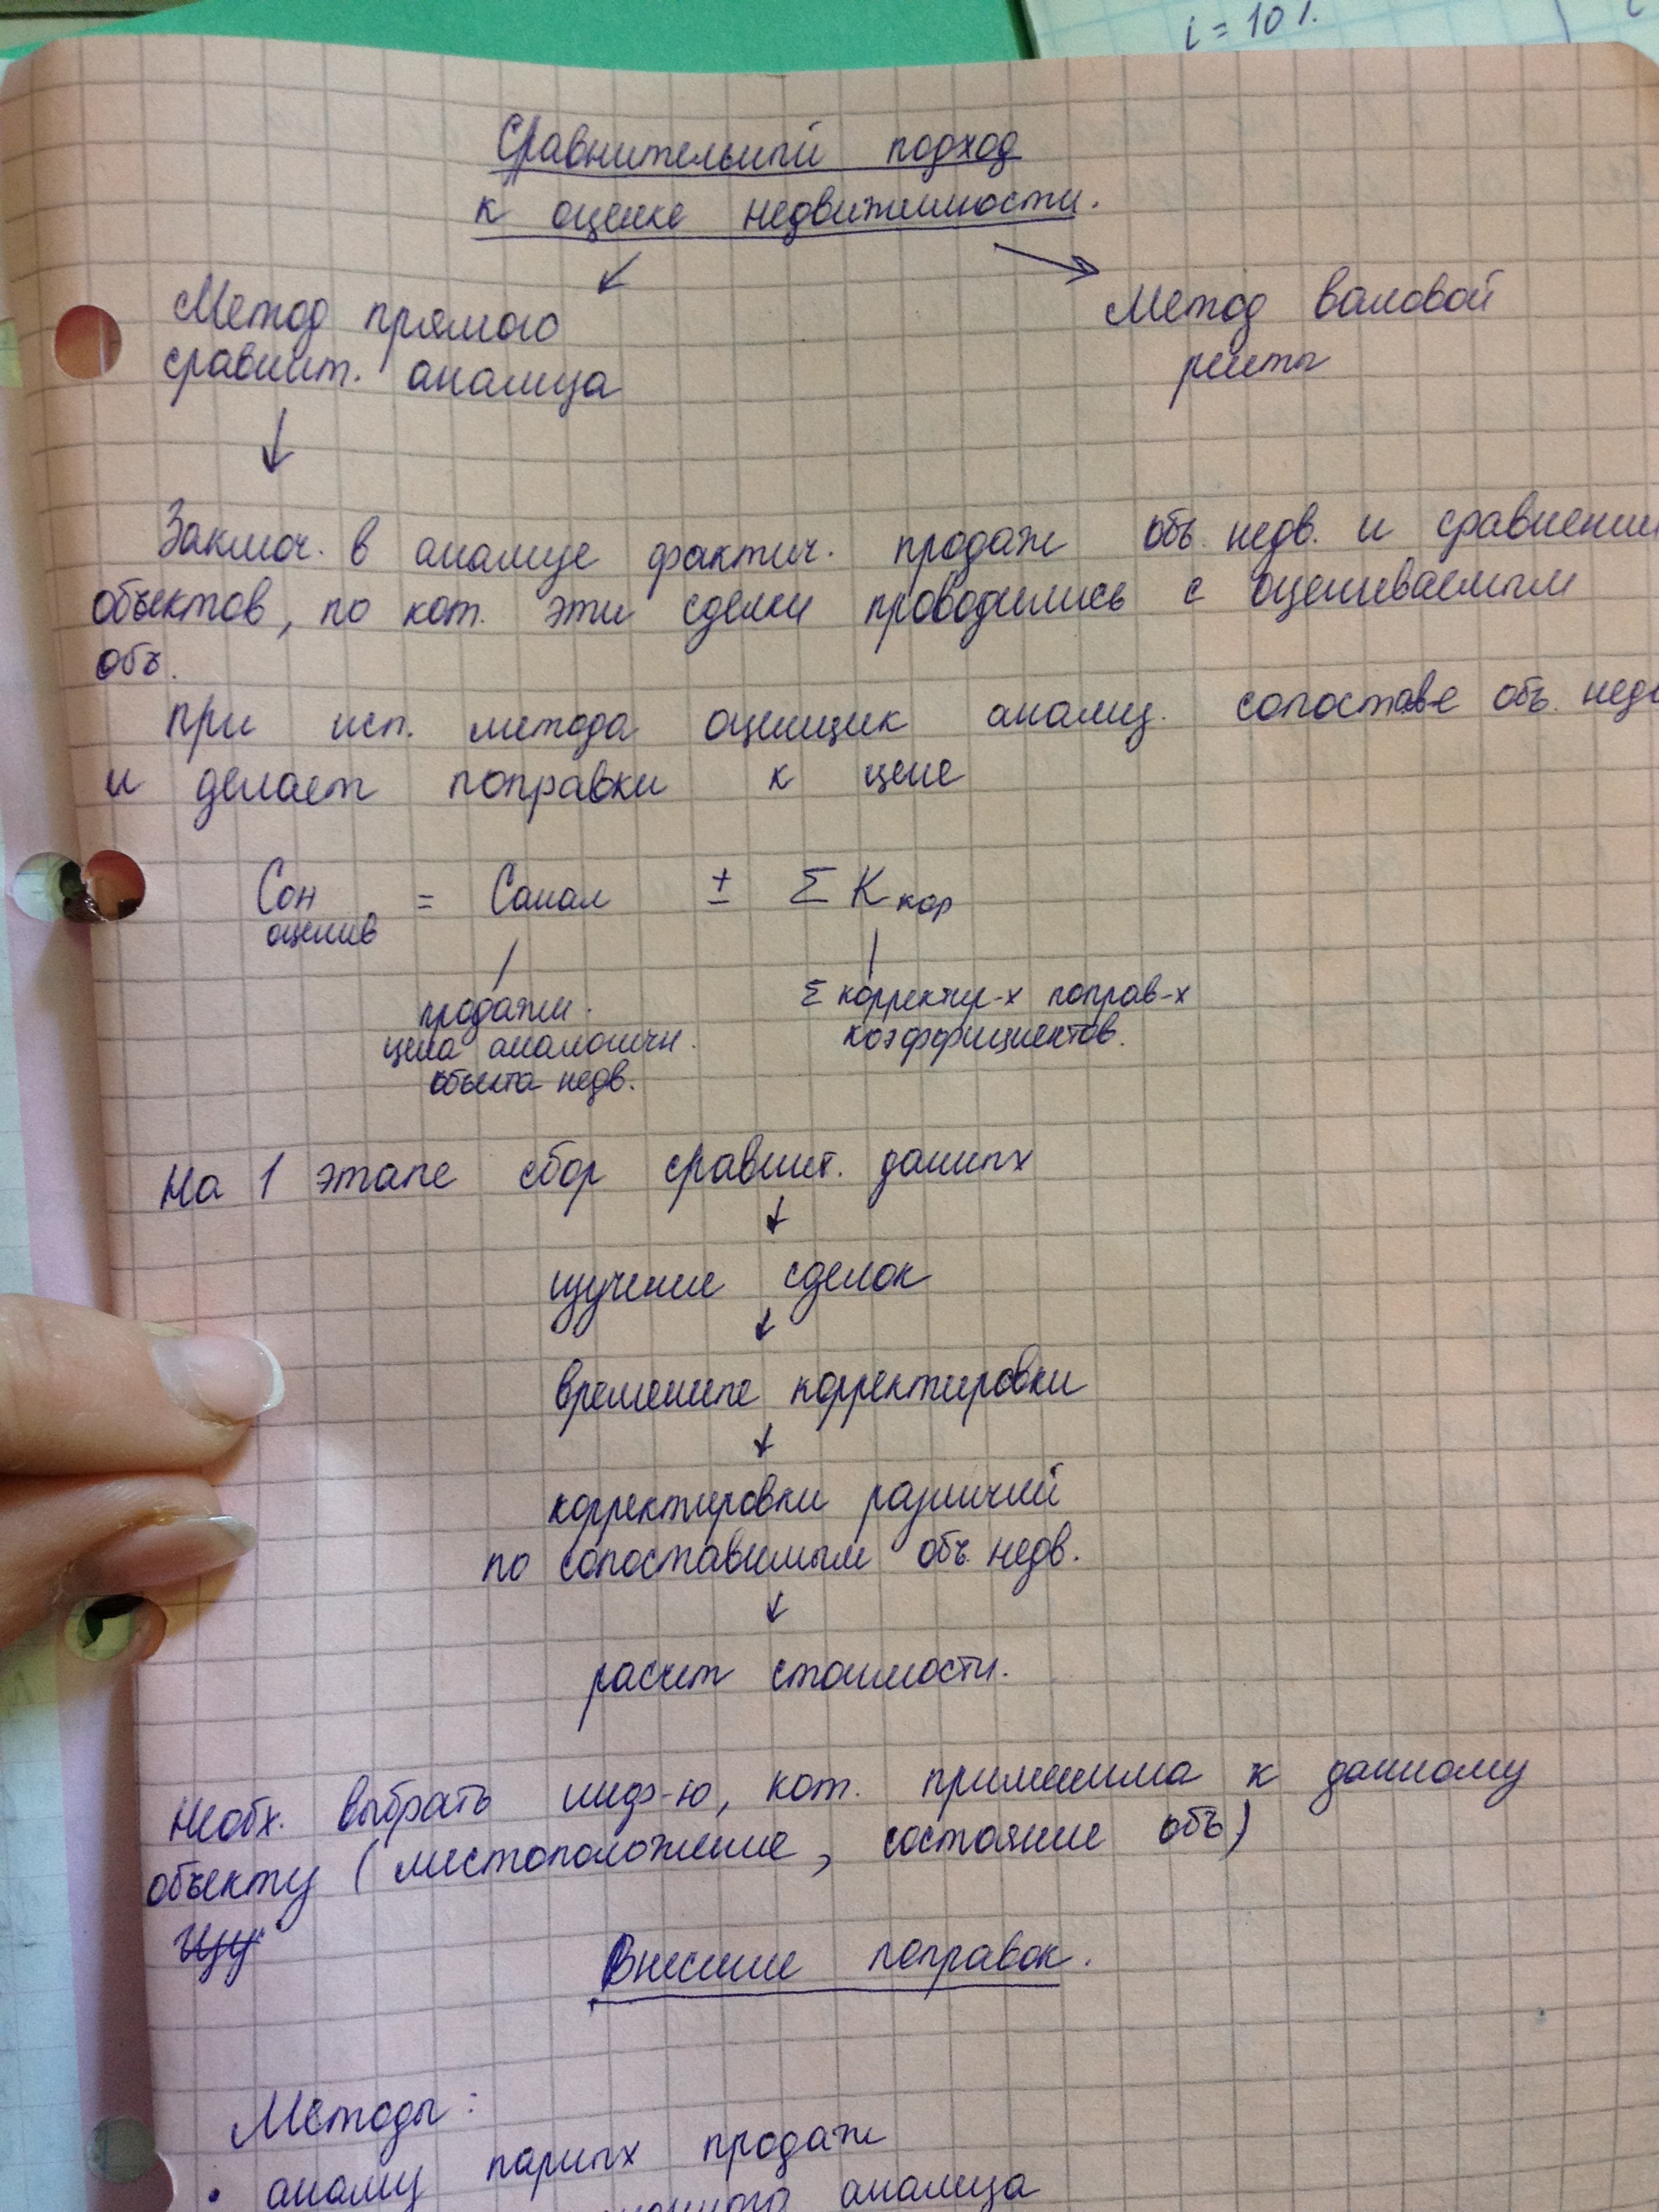 i = 10%
Сравнительный подход
к оценке недвижимости.
Метод прямого
сравнит. анализа
Метод валовой
ренты
Заключ. в анализе фактич. продаж объ. недв. и сравнении
объектов, по кот. эти сделки проводились с оцениваемым
объ.
При исп. метода оценщик анализ. сопостав-е объ. недв
и делает поправки к цене
Сон = Санал ± Σ Ккор
оценив
продажн.
цена аналогичн.
объекта недв.
Σ корректир-х поправ-х
коэффициентов.
На 1 этапе сбор сравнит. данных
изучение сделок
временные корректировки
корректировки различий
по сопоставимым объ. недв.
расчет стоимости.
Необх. выбрать инф-ю, кот. применима к данному
объекту (местоположение, состояние объ)
Внесение поправок.
Методы:
• анализ парных продаж
анализа